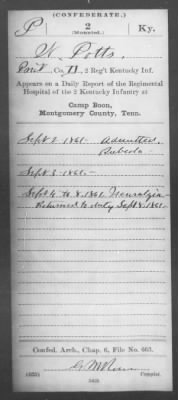 (CONFEDERATE.)
P 2 Ky.
(Mounted.)
N. Potts,
Co. H, 2 Reg't Kentucky Inf.
Appears on a Daily Report of the Regimental
Hospital of the 2 Kentucky Infantry at
Camp Boon,
Montgomery County, Tenn.
Sept 2 1861 Admitted.
Rubeola
Sept 3 1861
Sept 4 to 8 1861 Neuralgia
Returned to duty Sept 8 1861
Confed. Arch., Chap. 6, File No. 665.
Copyist.